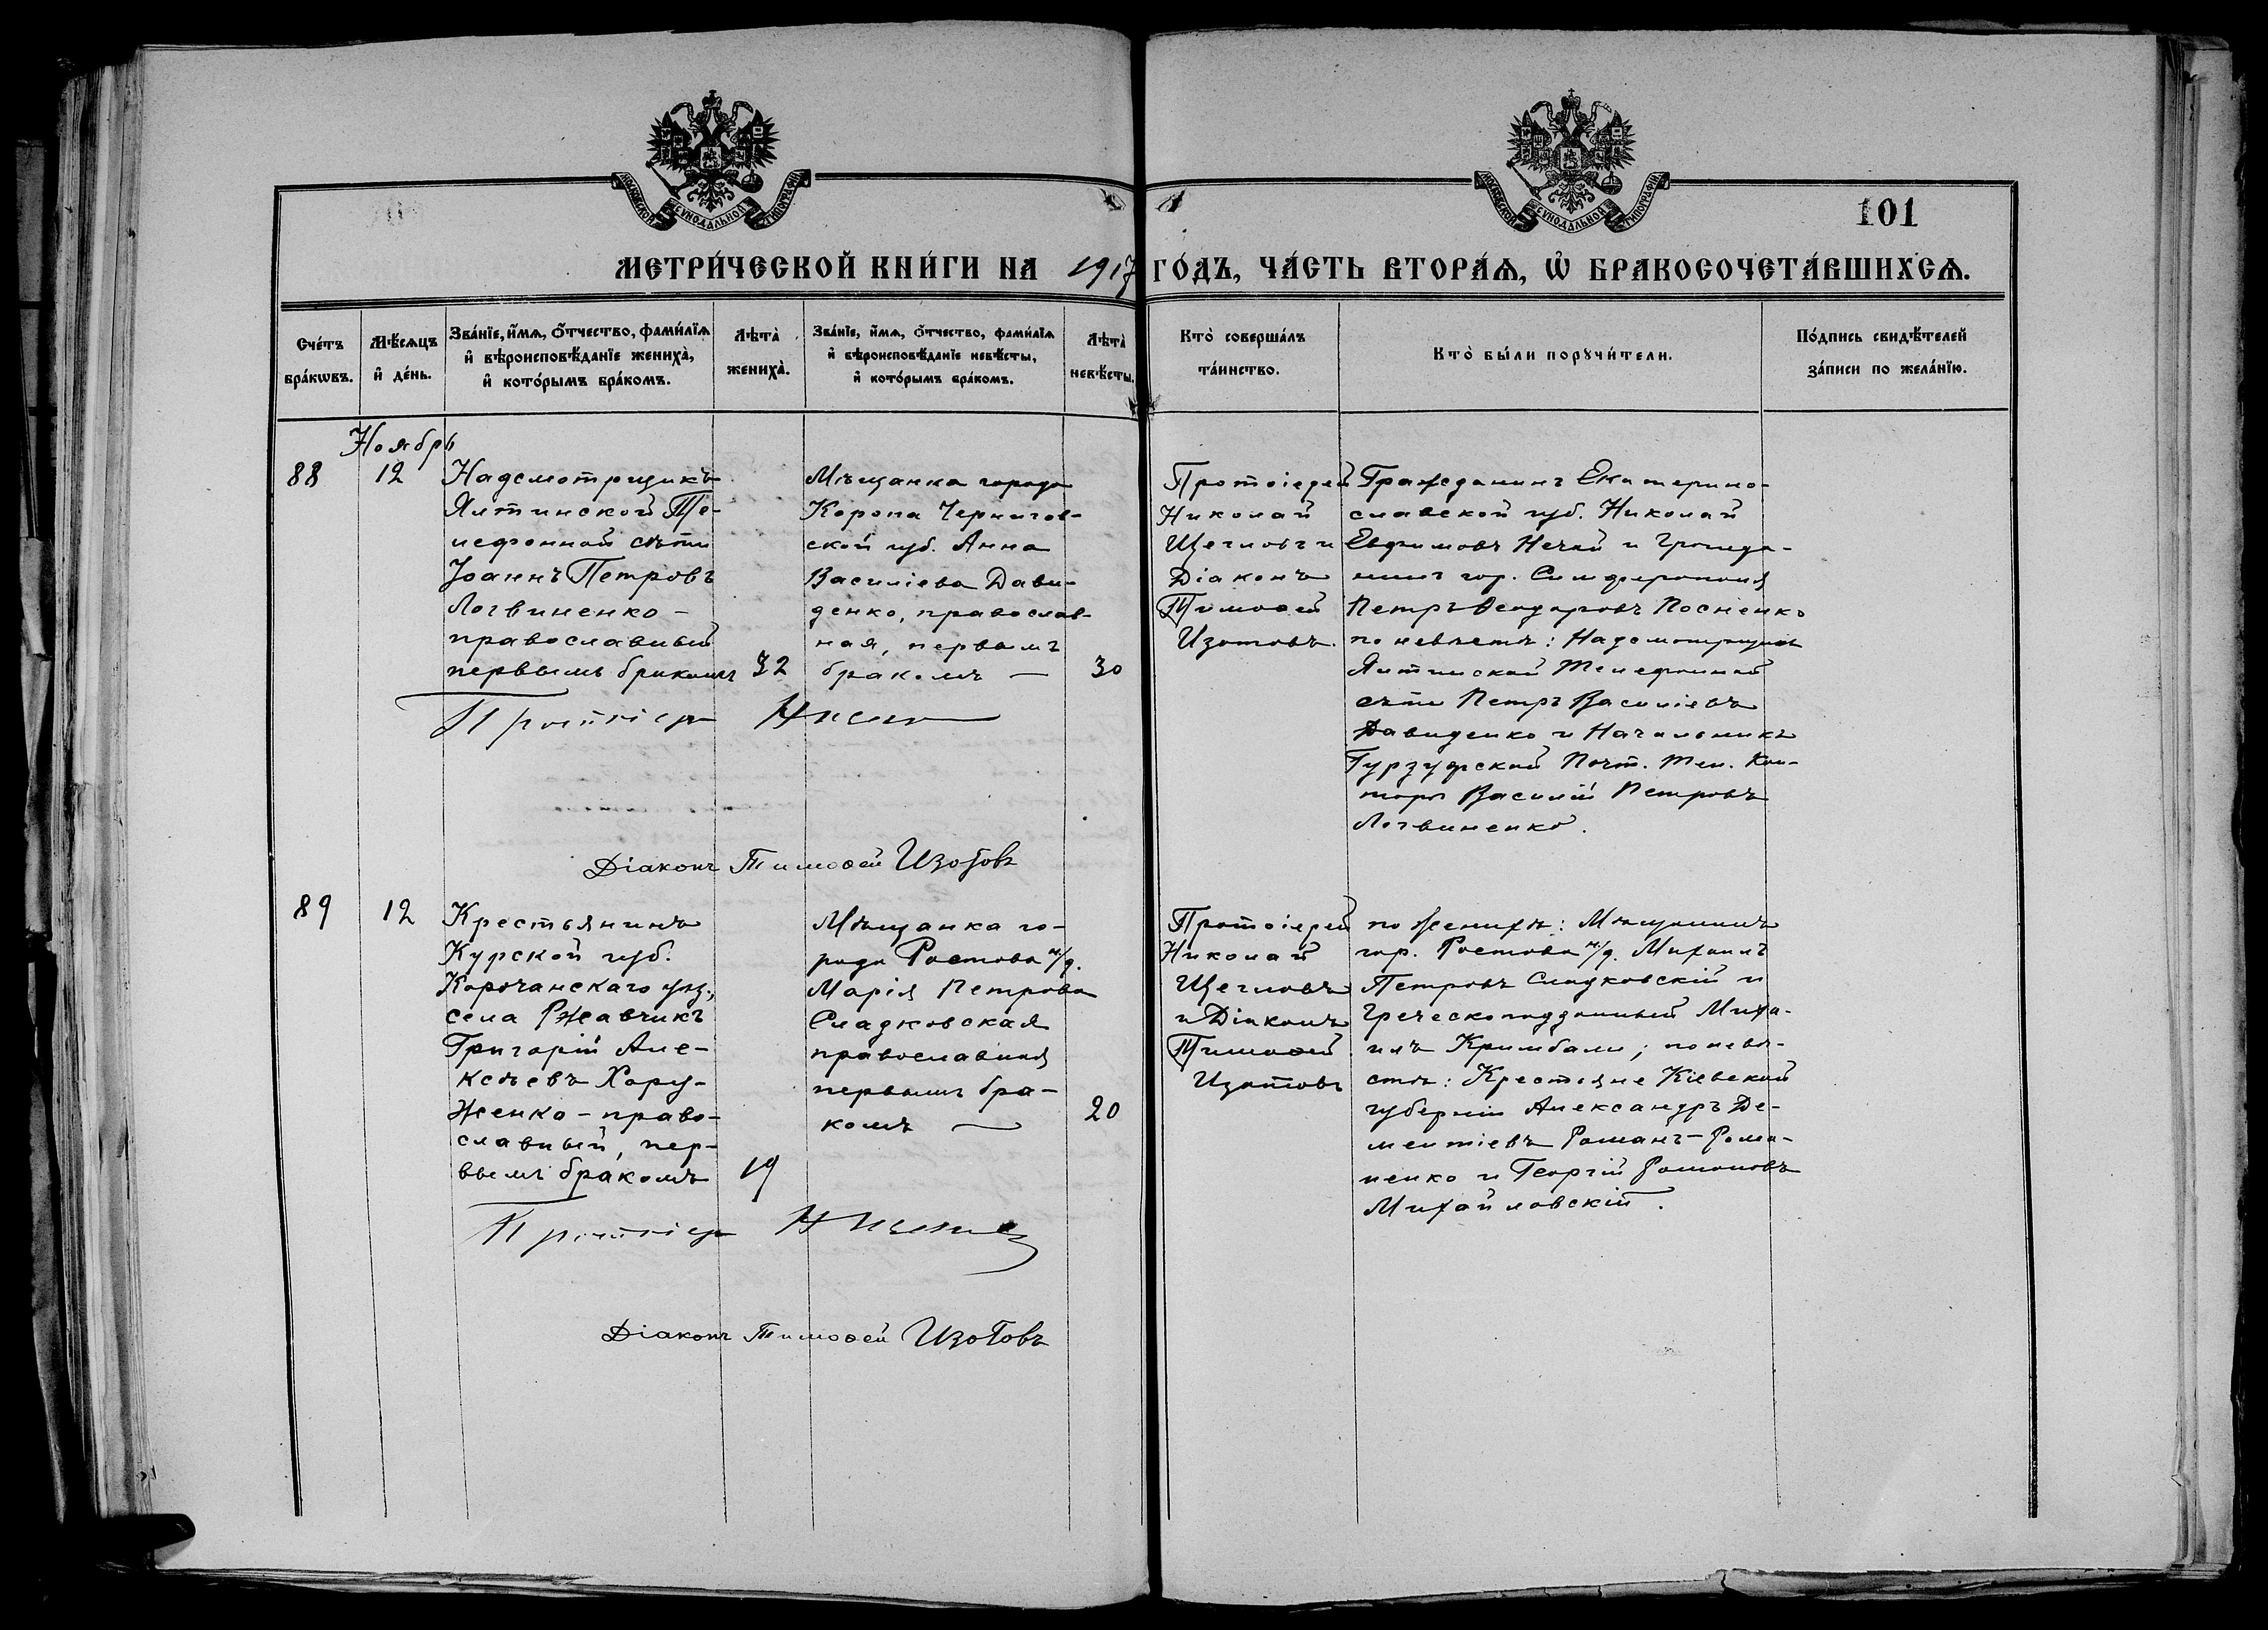 МОСКОВСКОЙ СѴНОДАЛЬНОЙ ТИПОГРАФІИ
МОСКОВСКОЙ СѴНОДАЛЬНОЙ ТИПОГРАФІИ
101
МЕТРИ́ЧЕСКОЙ КНИ́ГИ НА 1917 ГО́ДЪ, ЧА́СТЬ ВТОРА́Ѧ, Ѡ҆ БРАКОСОЧЕТА́ВШИХСѦ.
Сче́тъ
бра́кѡвъ.
Мѣ́сѧцъ
и҆ де́нь.
Зва́нїе, и҆́мѧ, ѻ҆́тчество, фами́лїѧ
и҆ вѣроисповѣ́данїе жениха̀,
и҆ кото́рымъ бра́комъ.
Лѣта̀
жениха̀.
Зва́нїе, и҆́мѧ, ѻ҆́тчество, фами́лїѧ
и҆ вѣроисповѣ́данїе невѣ́сты,
и҆ кото́рымъ бра́комъ.
Лѣта̀
невѣ́сты.
Кто̀ соверша́лъ
та́инство.
Кто̀ бы́ли порꙋчи́тели.
По́дпись свидѣ́телей
за́писи по жела́нїю.
Ноябрь
88
12
Надсмотрщикъ
Ялтинской Те-
лефонной сѣти
Іоаннъ Петровъ
Логвиненко -
православный
первымъ бракомъ
32
Мѣщанка города
Коропа Чернигов-
ской губ. Анна
Василіева Дави-
денко, православ-
ная, первымъ
бракомъ —
30
Протоіерей
Николай
Щегловъ и
Діаконъ
Тимоѳей
Изотовъ.
Гражданинъ Екатерино-
славской губ. Николай
Евфимовъ Нечай и Гражда-
нинъ гор. Симферополя
Петръ Ѳеодоровъ
по невѣстѣ: Надсмотрщикъ
Ялтинской Телефонной
сѣти Петръ Василіевъ
Давиденко и Начальникъ
Гурзуфской Почт. Тел. Кон-
торы Василій Петровъ
Логвиненко.
Протоіерей
Діаконъ Тимоѳей Изотовъ
89
12
Крестьянинъ
Курской губ.
Корочанскаго уѣз.,
села Ржавчикъ
Григорій Але-
ксѣевъ Хору-
женко - право-
славный, пер-
вымъ бракомъ
19
Мѣщанка го-
рода Ростова н/д.
Марія Петрова
Сладковская
православная
первымъ бра-
комъ —
20
Протоіерей
Николай
Щегловъ
и Діаконъ
Тимоѳей
Изотовъ
по женихѣ: Мѣщанинъ
гор. Ростова н/д. Михаилъ
Петровъ Сладковскій и
Греческоподданный Миха-
илъ Кримбали; по невѣ-
стѣ: Крестьяне Кіевской
губерніи Александръ Де-
ментіевъ Романъ-Рома-
ненко и Георгій Романовъ
Михайловскій.
Протоіерей
Діаконъ Тимоѳей Изотовъ